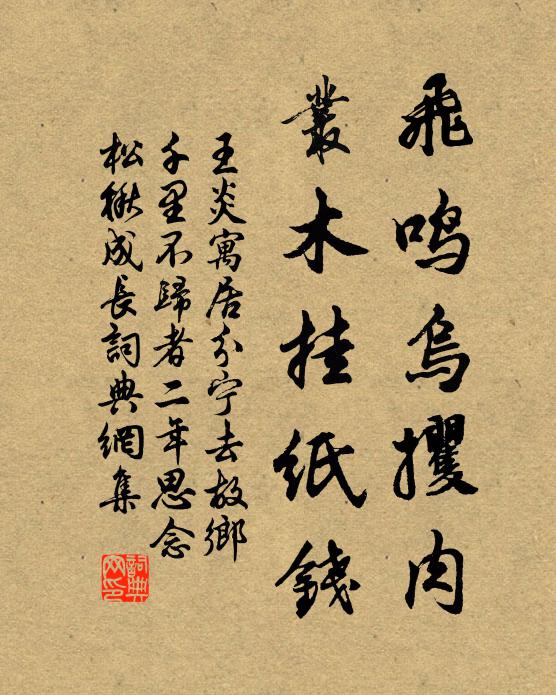 飛鳴烏攫肉
叢木挂紙錢
王炎寓居分宁去故鄉
千里不歸者二年思念
松楸成長詞典網集
詞典
网印